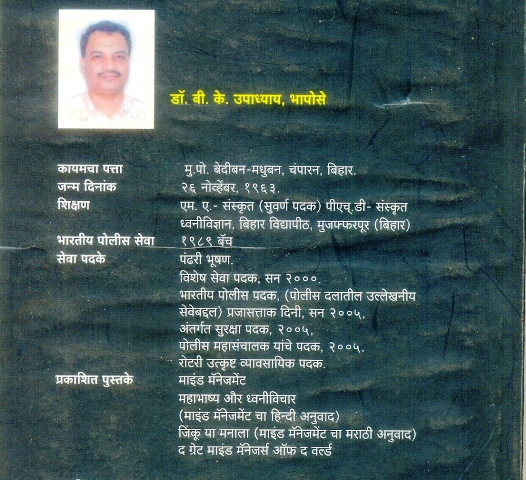 डॉ. बी. के. उपाध्याय, भापोसे
कायमचा पत्ता मु.पो. बेदीबन-मधुबन, चंपारन, बिहार.
जन्म दिनांक २६ नोव्हेंबर, १९६३.
शिक्षण एम. ए.- संस्कृत (सुवर्ण पदक) पीएच्.डी- संस्कृत
ध्वनीविज्ञान, बिहार विद्यापीठ, मुजफ्फरपूर (बिहार)
भारतीय पोलीस सेवा १९८९ बॅच
सेवा पदके पंढरी भूषण.
विशेष सेवा पदक, सन २०००.
भारतीय पोलीस पदक, (पोलीस दलातील उल्लेखनीय
सेवेबद्दल) प्रजासत्ताक दिनी, सन २००५,
अंतर्गत सुरक्षा पदक, २००५,
पोलीस महासंचालक यांचे पदक, २००५.
रोटरी उत्कृष्ट व्यावसायिक पदक.
प्रकाशित पुस्तके माइंड मॅनेजमेंट
महाभाष्य और ध्वनीविचार
(माइंड मॅनेजमेंट चा हिन्दी अनुवाद)
जिंकू या मनाला (माइंड मॅनेजमेंट चा मराठी अनुवाद)
द ग्रेट माइंड मॅनेजर्स ऑफ द वर्ल्ड